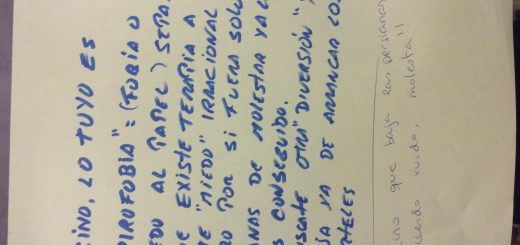 CINO, LO TUYO ES
PIROFOBIA" = (FOBIA O
EDO AL PAPEL) SEPA
E EXISTE TERAPIA A
TE "MIEDO" IRRACIONAL
RO POR SI FUERA SOLO
NAS DE MOLESTAR YA
S CONSEGUIDO.
SCATE OTRA "DIVERSIÓN"
ÍA YA DE ARRANCAR LOS
TELES
no que baja las persianas
ciendo ruido, molesta!!